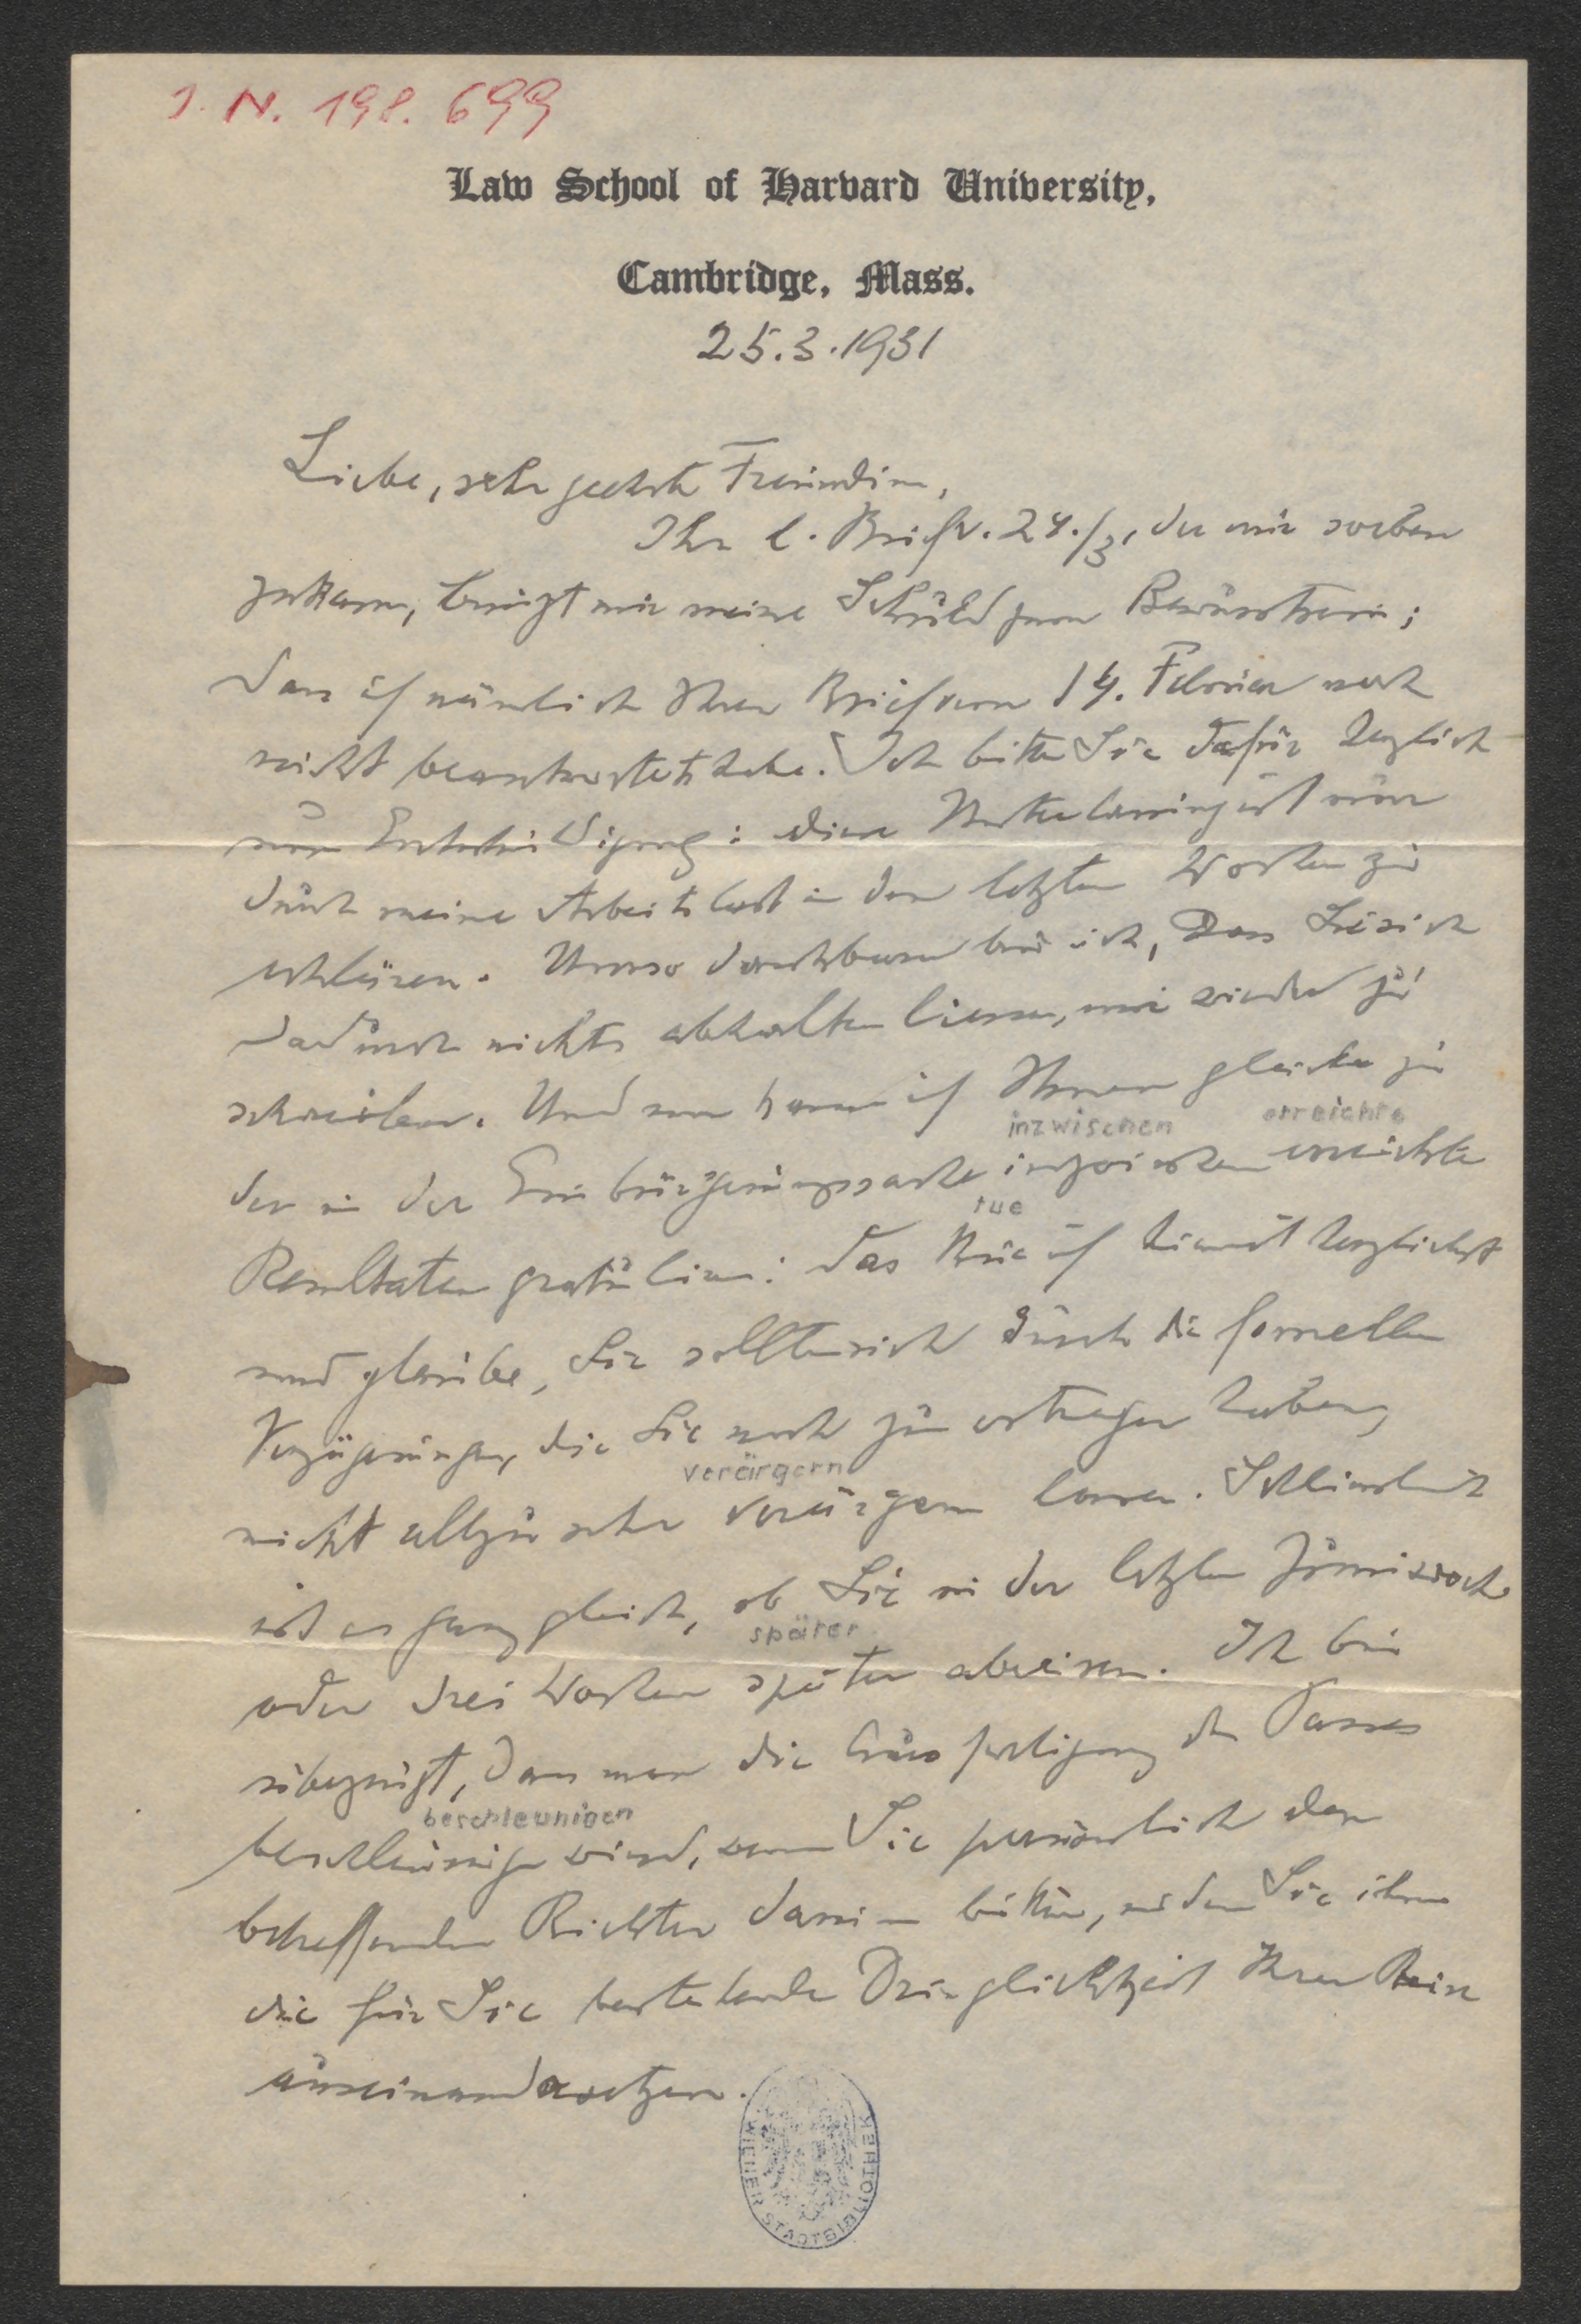 I. N. 198.699
Law School of Harvard University,
Cambridge, Mass.
25.3.1931
Liebe, sehr geehrte Freundin,
Ihr l. Brief v. 24./3, der mir soeben
zukam, bringt mir meine Schuld zum Bewusstsein;
dass ich nämlich Ihren Brief vom 14. Februar noch
nicht beantwortet habe. Ich bitte Sie dafür herzlich
um Entschuldigung: diese Unterlassung ist nur
durch meine Arbeitslast in den letzten Wochen zu
erklären. Umso dankbarer bin ich, dass Sie sich
dadurch nicht abhalten liessen, mir wieder zu
schreiben. Und nun kann ich Ihnen gleich zu
inzwischen erreichte
der in der Einbürgerungssache inzwischen erreichten
tue
Resultaten gratulieren: das tue ich hiemit herzlichst
und glaube, Sie sollten sich durch die formellen
Verzögerungen, die Sie noch zu ertragen haben,
verärgern
nicht allzu sehr verärgern lassen. Schliesslich
ist es ganz gleich, ob Sie in der letzten Juniwoche
später
oder drei Wochen später abreisen. Ich bin
überzeugt, dass man die Ausfertigung des Passes
beschleunigen
beschleunigen wird, wenn Sie persönlich den
betreffenden Richter darum bitten, indem Sie ihm
die für Sie bestehende Dringlichkeit Ihrer Reise
auseinandersetzen.
WIENER STADTBIBLIOTHEK